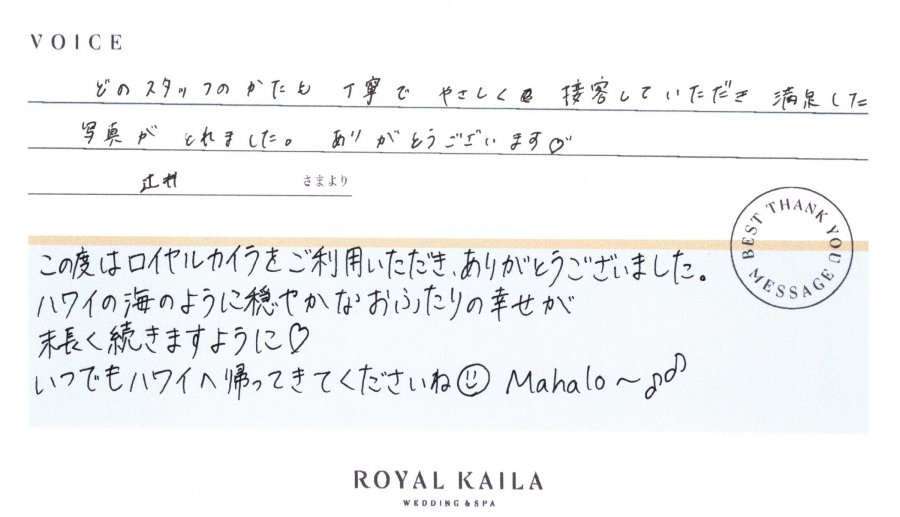 VOICE
どのスタッフのかたも 丁寧で やさしく 接客していただき 満足した
写真が とれました。 ありがとうございます♡
辻村 さまより
BEST THANK YOU MESSAGE
この度はロイヤルカイラをご利用いただき、ありがとうございました。
ハワイの海のように穏やかなおふたりの幸せが
末長く続きますように♡
いつでもハワイへ帰ってきてくださいね☺ Mahalo〜♪♪
ROYAL KAILA
WEDDING & SPA